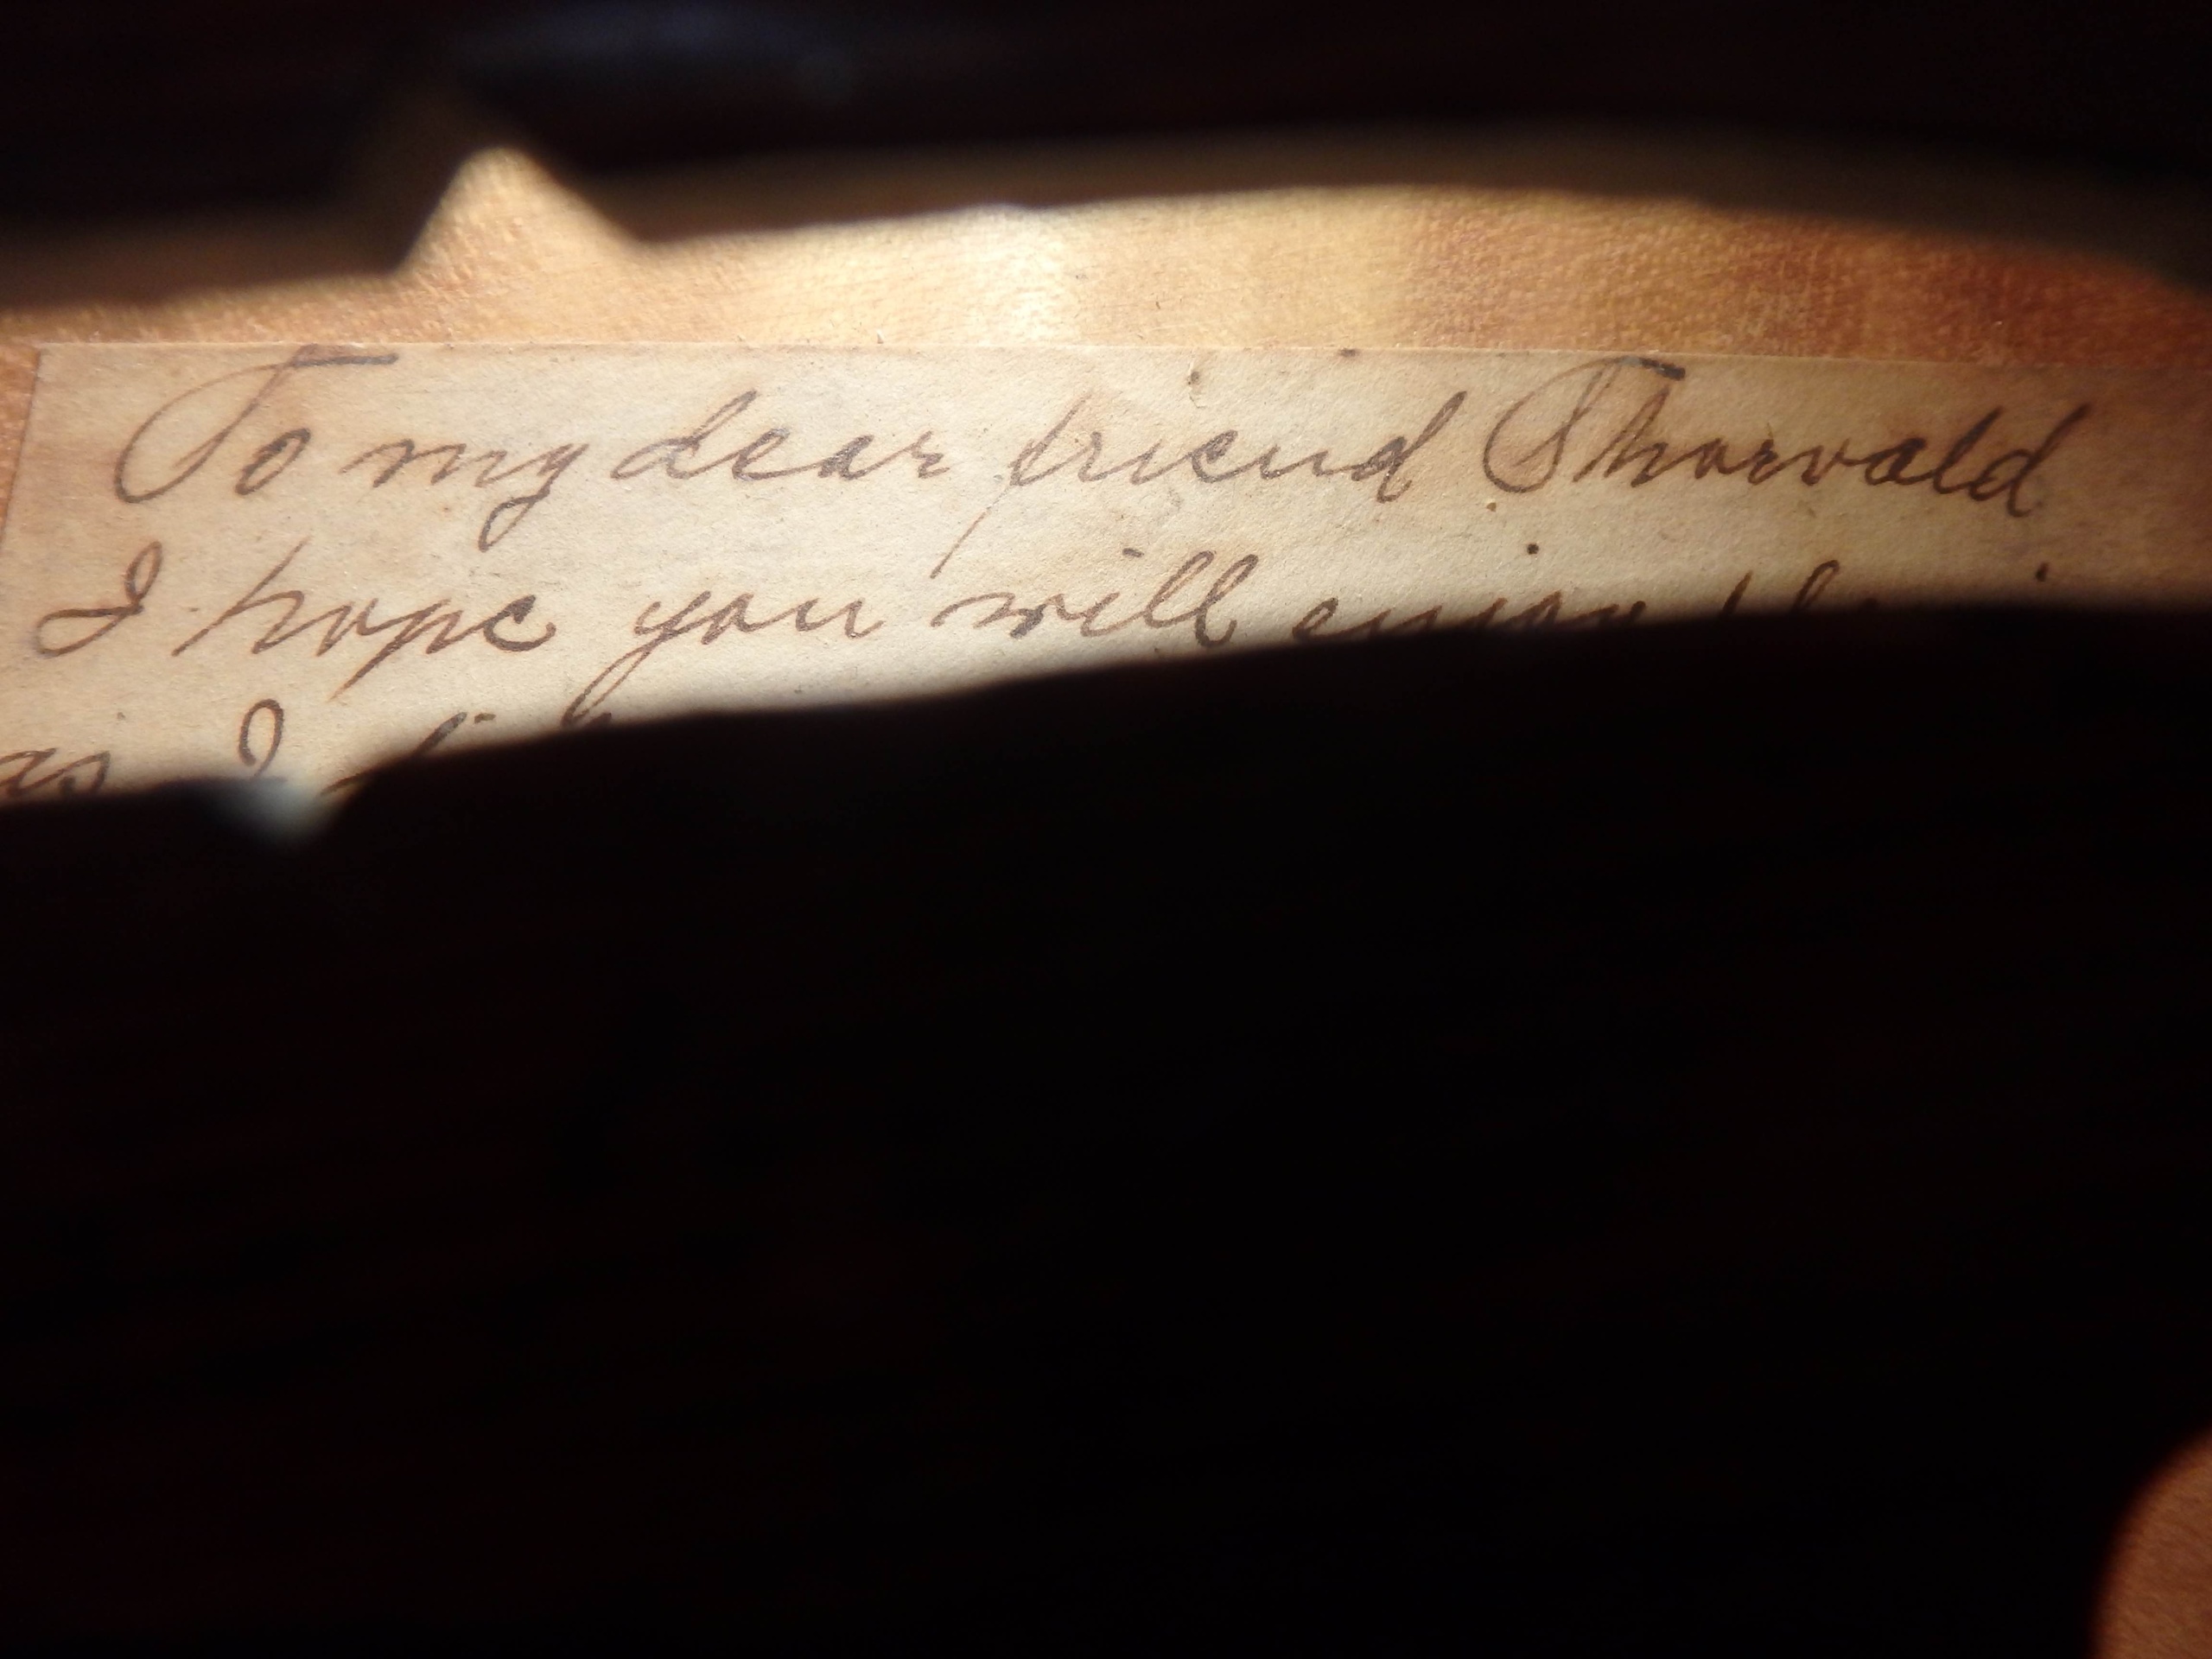 To my dear friend Thorvald
I hope you will enjoy
as I